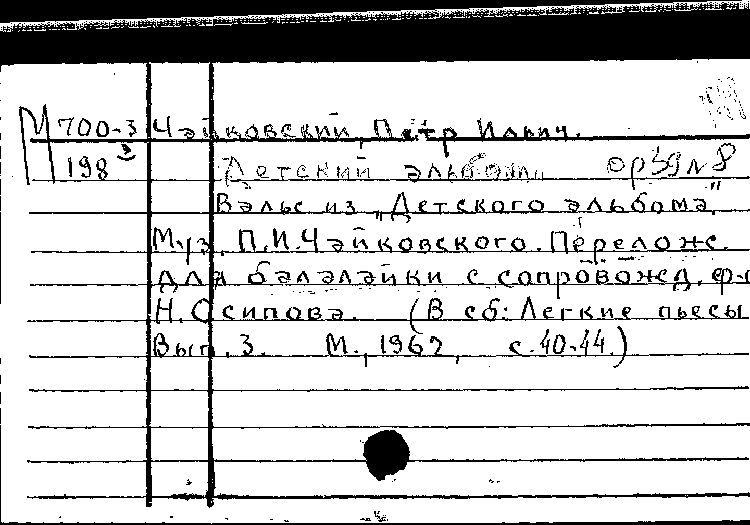 М 700-3 Чайковский, Петр Ильич.
198 Детский альбом ор39 №8
Вальс из „Детского альбома"
Муз. П.И.Чайковского. Перелож.
для балалайки с сопровожд. ф-
Н. Осипова. (В сб: Легкие пьесы
Вып. 3. М., 1962, с.40-44.)